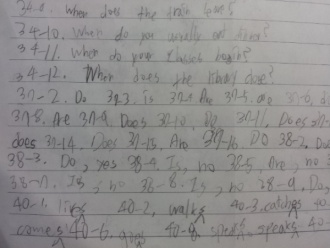 34-9. When does the train leave?
34-10. What do you usually eat
34-11. When do your classes begin?
34-12. When does the library close?
37-2. Do 37-3. is 37-4 Are 37-5. are 37-6.
37-8. Are 37-9. Does 37-10. Do 37-11. Does
does 37-14. Does 37-15. Are 37-16. DO 38-2. Do
38-3. Do, yes 38-4. Is, no 38-5. Are, no
38-7. Is, no 38-8. Is, no 38-9. Do,
40-1. lives 40-2. walks 40-3. catches
comes 40-6. gives 40-8. speak, speaks 40